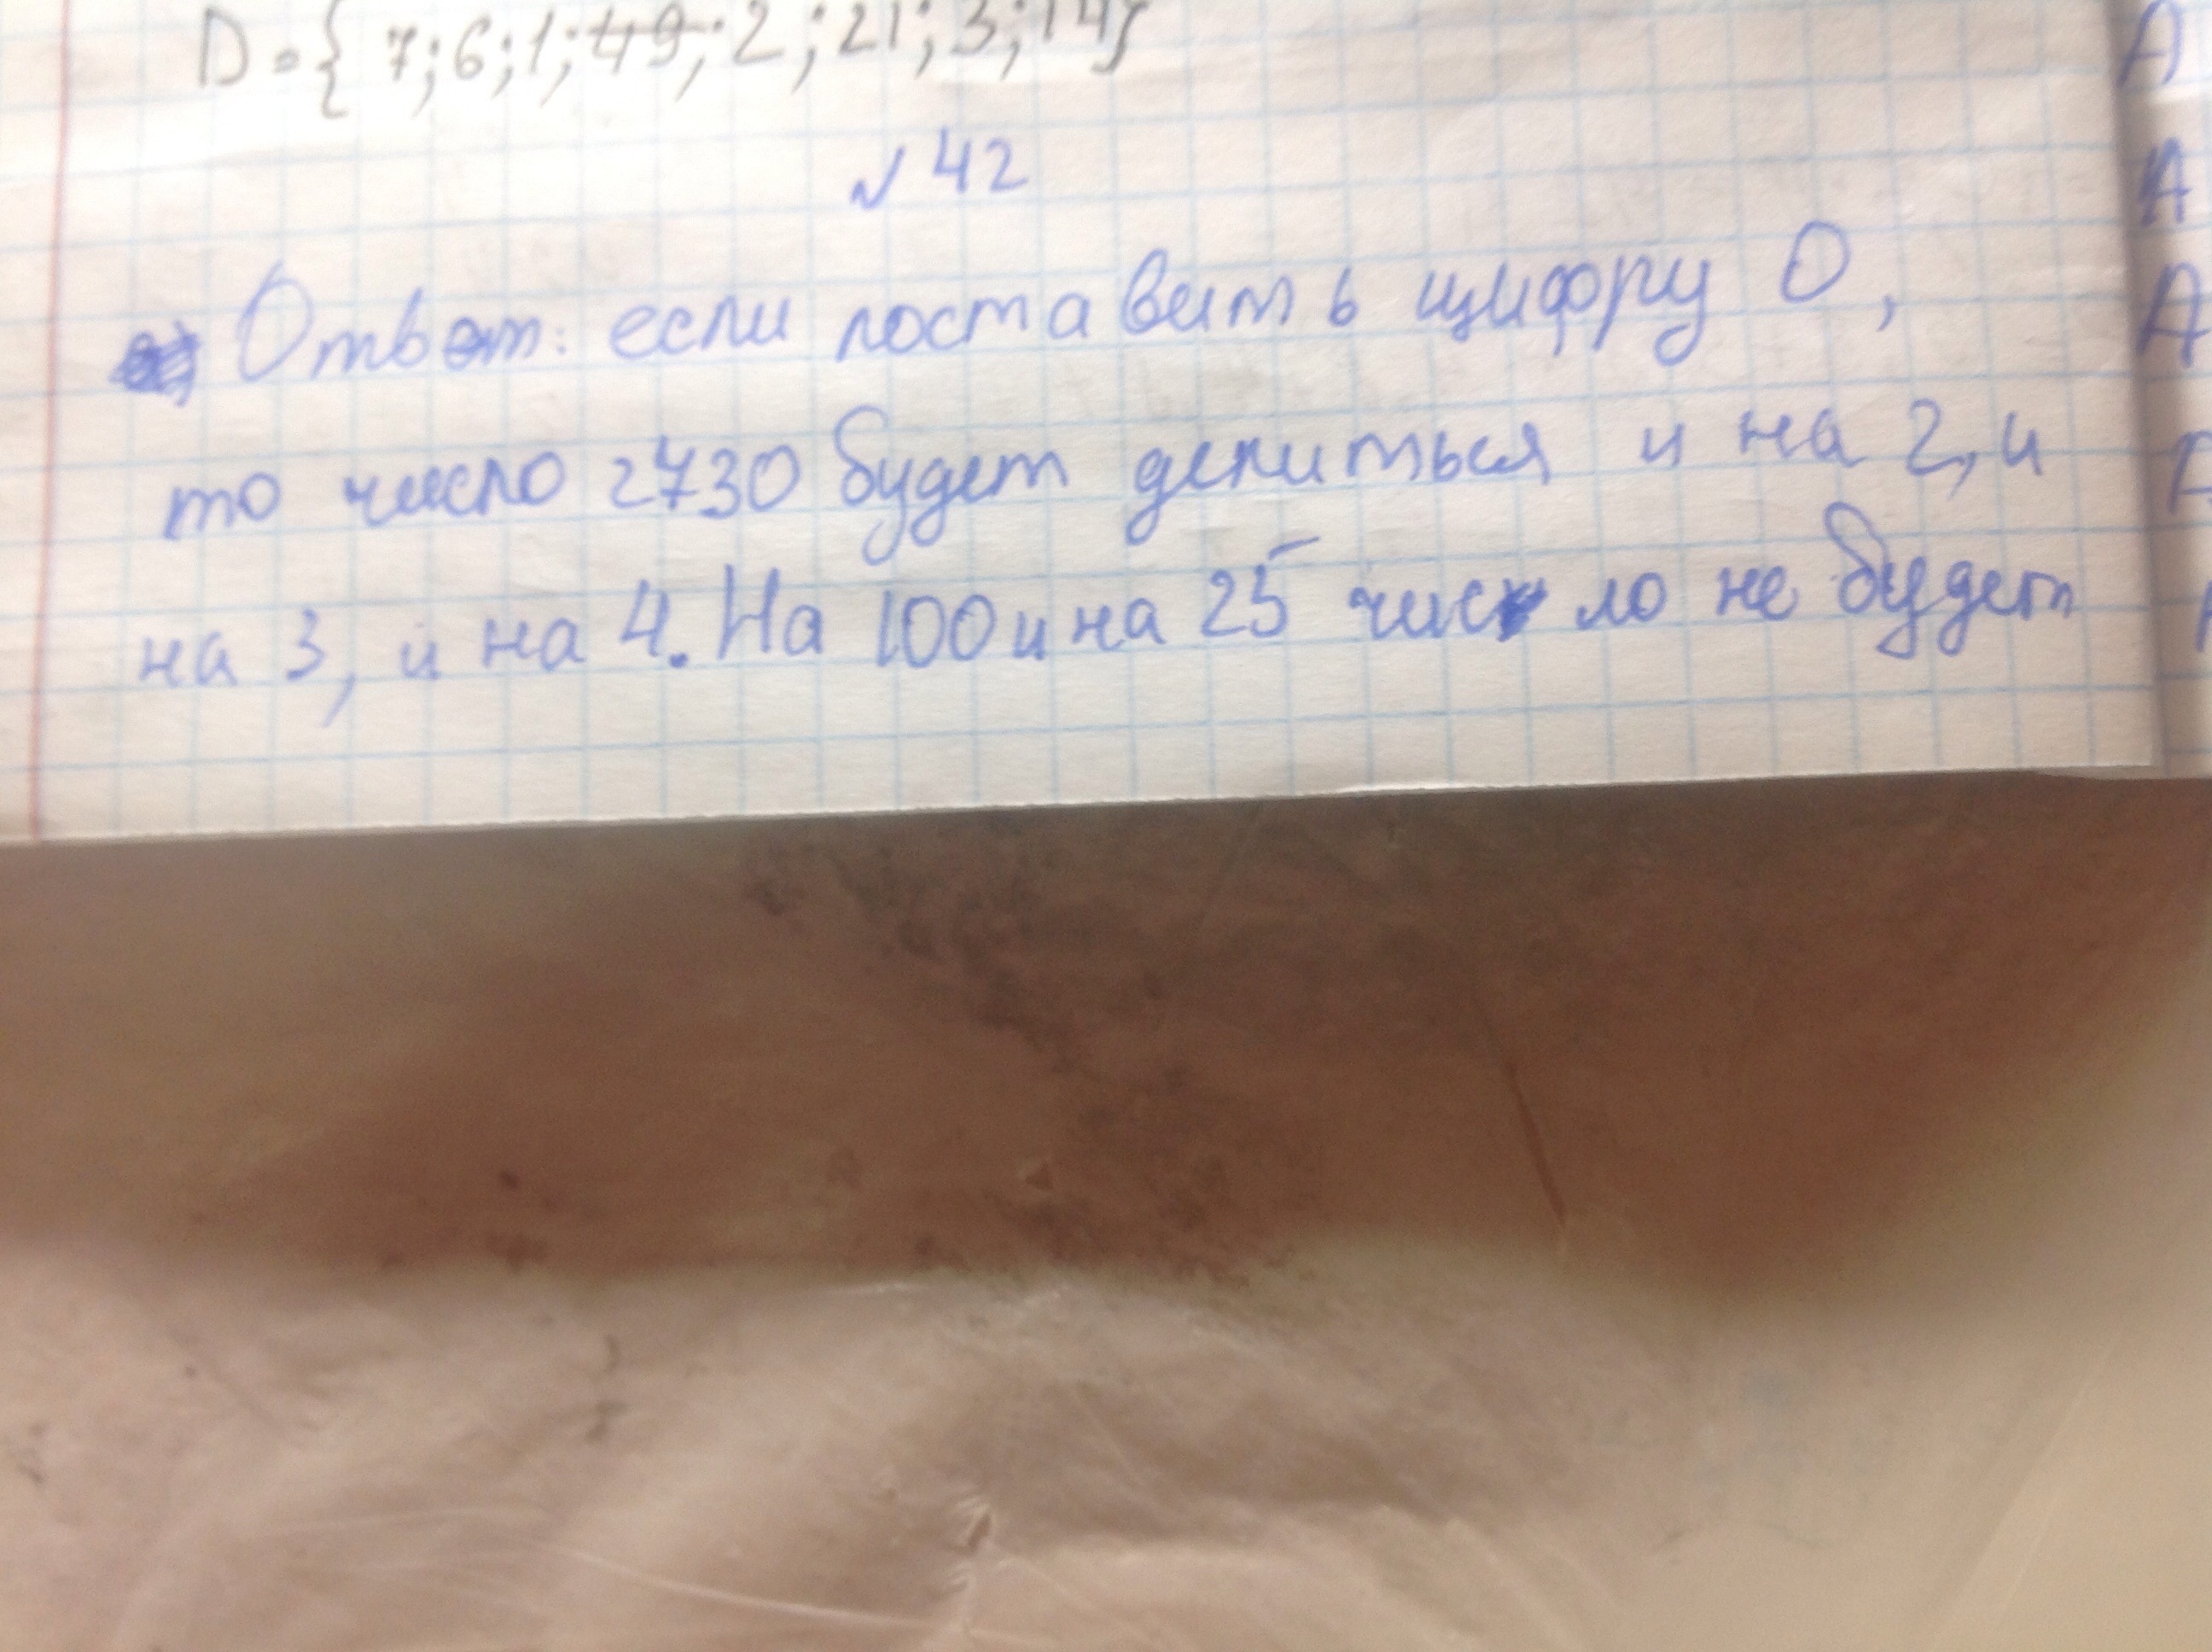 D = { 7; 6; 1; 49; 2; 21; 3; 14}
№ 42
Ответ: если поставить цифру 0,
то число 2730 будет делиться и на 2, и
на 3, и на 4. На 100 и на 25 число не будет
А
А
А